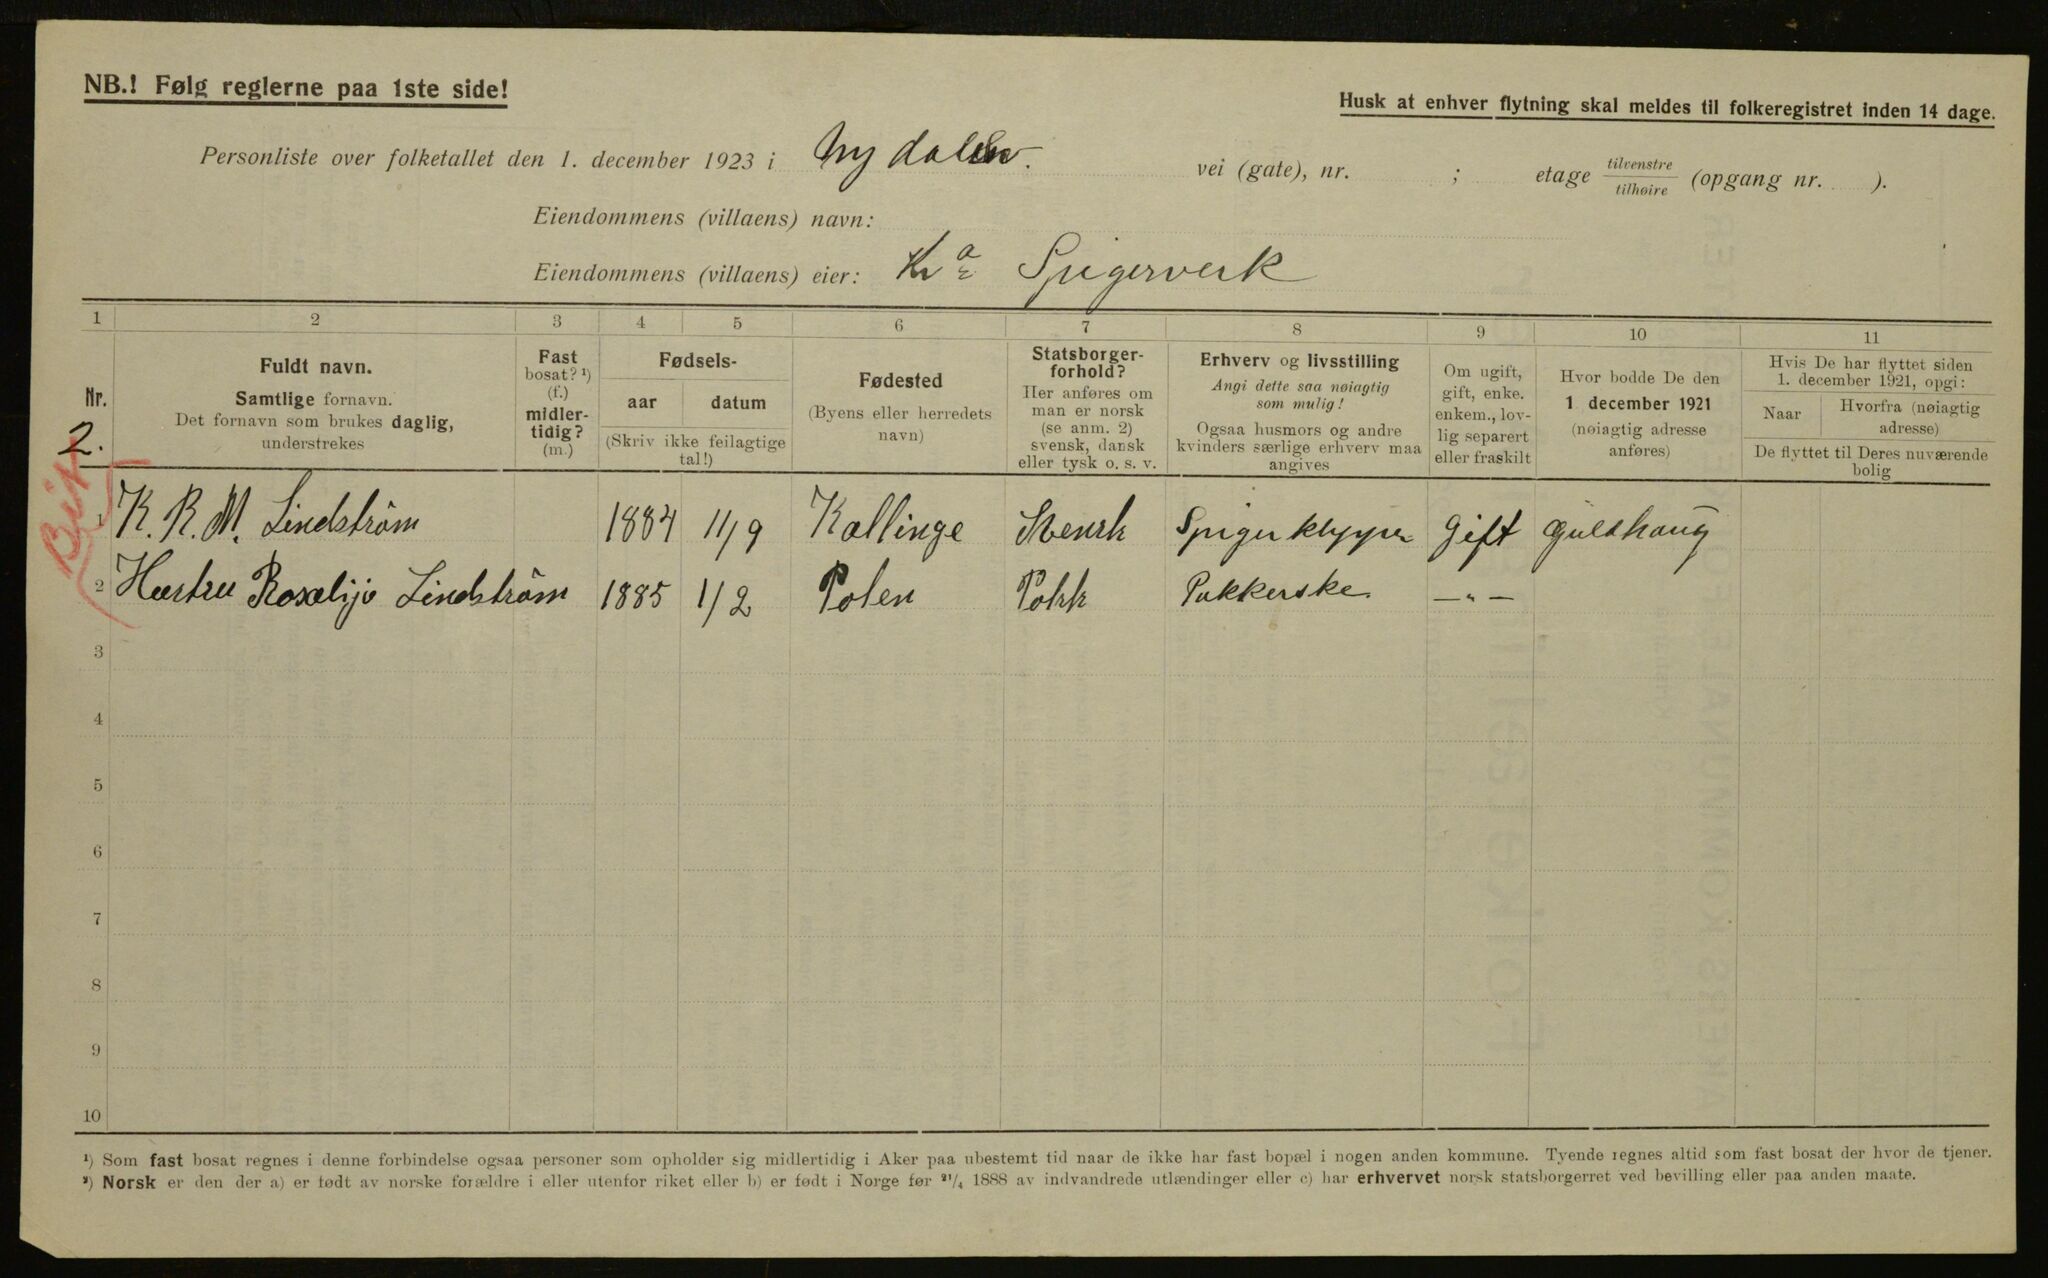 NB.! Følg reglerne paa 1ste side!
Husk at enhver flytning skal meldes til folkeregistret inden 14 dage.
Personliste over folketallet den 1. december 1923 i Nydalen. vei (gate), nr. ; etage tilvenstre/tilhøire (opgang nr. ).
Eiendommens (villaens) navn:
Eiendommens (villaens) eier: Kra Spigerverk
1 2 3 4 5 6 7 8 9 10 11
Nr.
2.
Fuldt navn.
Samtlige fornavn.
Det fornavn som brukes daglig,
understrekes
Fast
bosat? ¹)
(f.)
midler-
tidig?
(m.)
Fødsels-
aar datum
(Skriv ikke feilagtige
tal!)
Fødested
(Byens eller herredets
navn)
Statsborger-
forhold?
Her anføres om
man er norsk
(se anm. 2)
svensk, dansk
eller tysk o. s. v.
Erhverv og livsstilling
Angi dette saa nøiagtig
som mulig!
Ogsaa husmors og andre
kvinders særlige erhverv maa
angives
Om ugift,
gift, enke.
enkem., lov-
lig separert
eller fraskilt
Hvor bodde De den
1 december 1921
(nøiagtig adresse
anføres)
Hvis De har flyttet siden
1. december 1921, opgi:
Naar Hvorfra (nøiagtig
adresse)
De flyttet til Deres nuværende
bolig
1 K. R. M. Lindström 1884 11/9 Kallinge Svensk Spigerklipper Gift Guldhaug
2 Hustru Rosalije Lindström 1885 1/2 Polen Polsk Pakkerske. —„—
3
4
5
6
7
8
9
10
¹) Som fast bosat regnes i denne forbindelse ogsaa personer som opholder sig midlertidig i Aker paa ubestemt tid naar de ikke har fast bopæl i nogen anden kommune. Tyende regnes altid som fast bosat der hvor de tjener.
²) Norsk er den der a) er født av norske forældre i eller utenfor riket eller b) er født i Norge før ²¹/₄ 1888 av indvandrede utlændinger eller c) har erhvervet norsk statsborgerret ved bevilling eller paa anden maate.